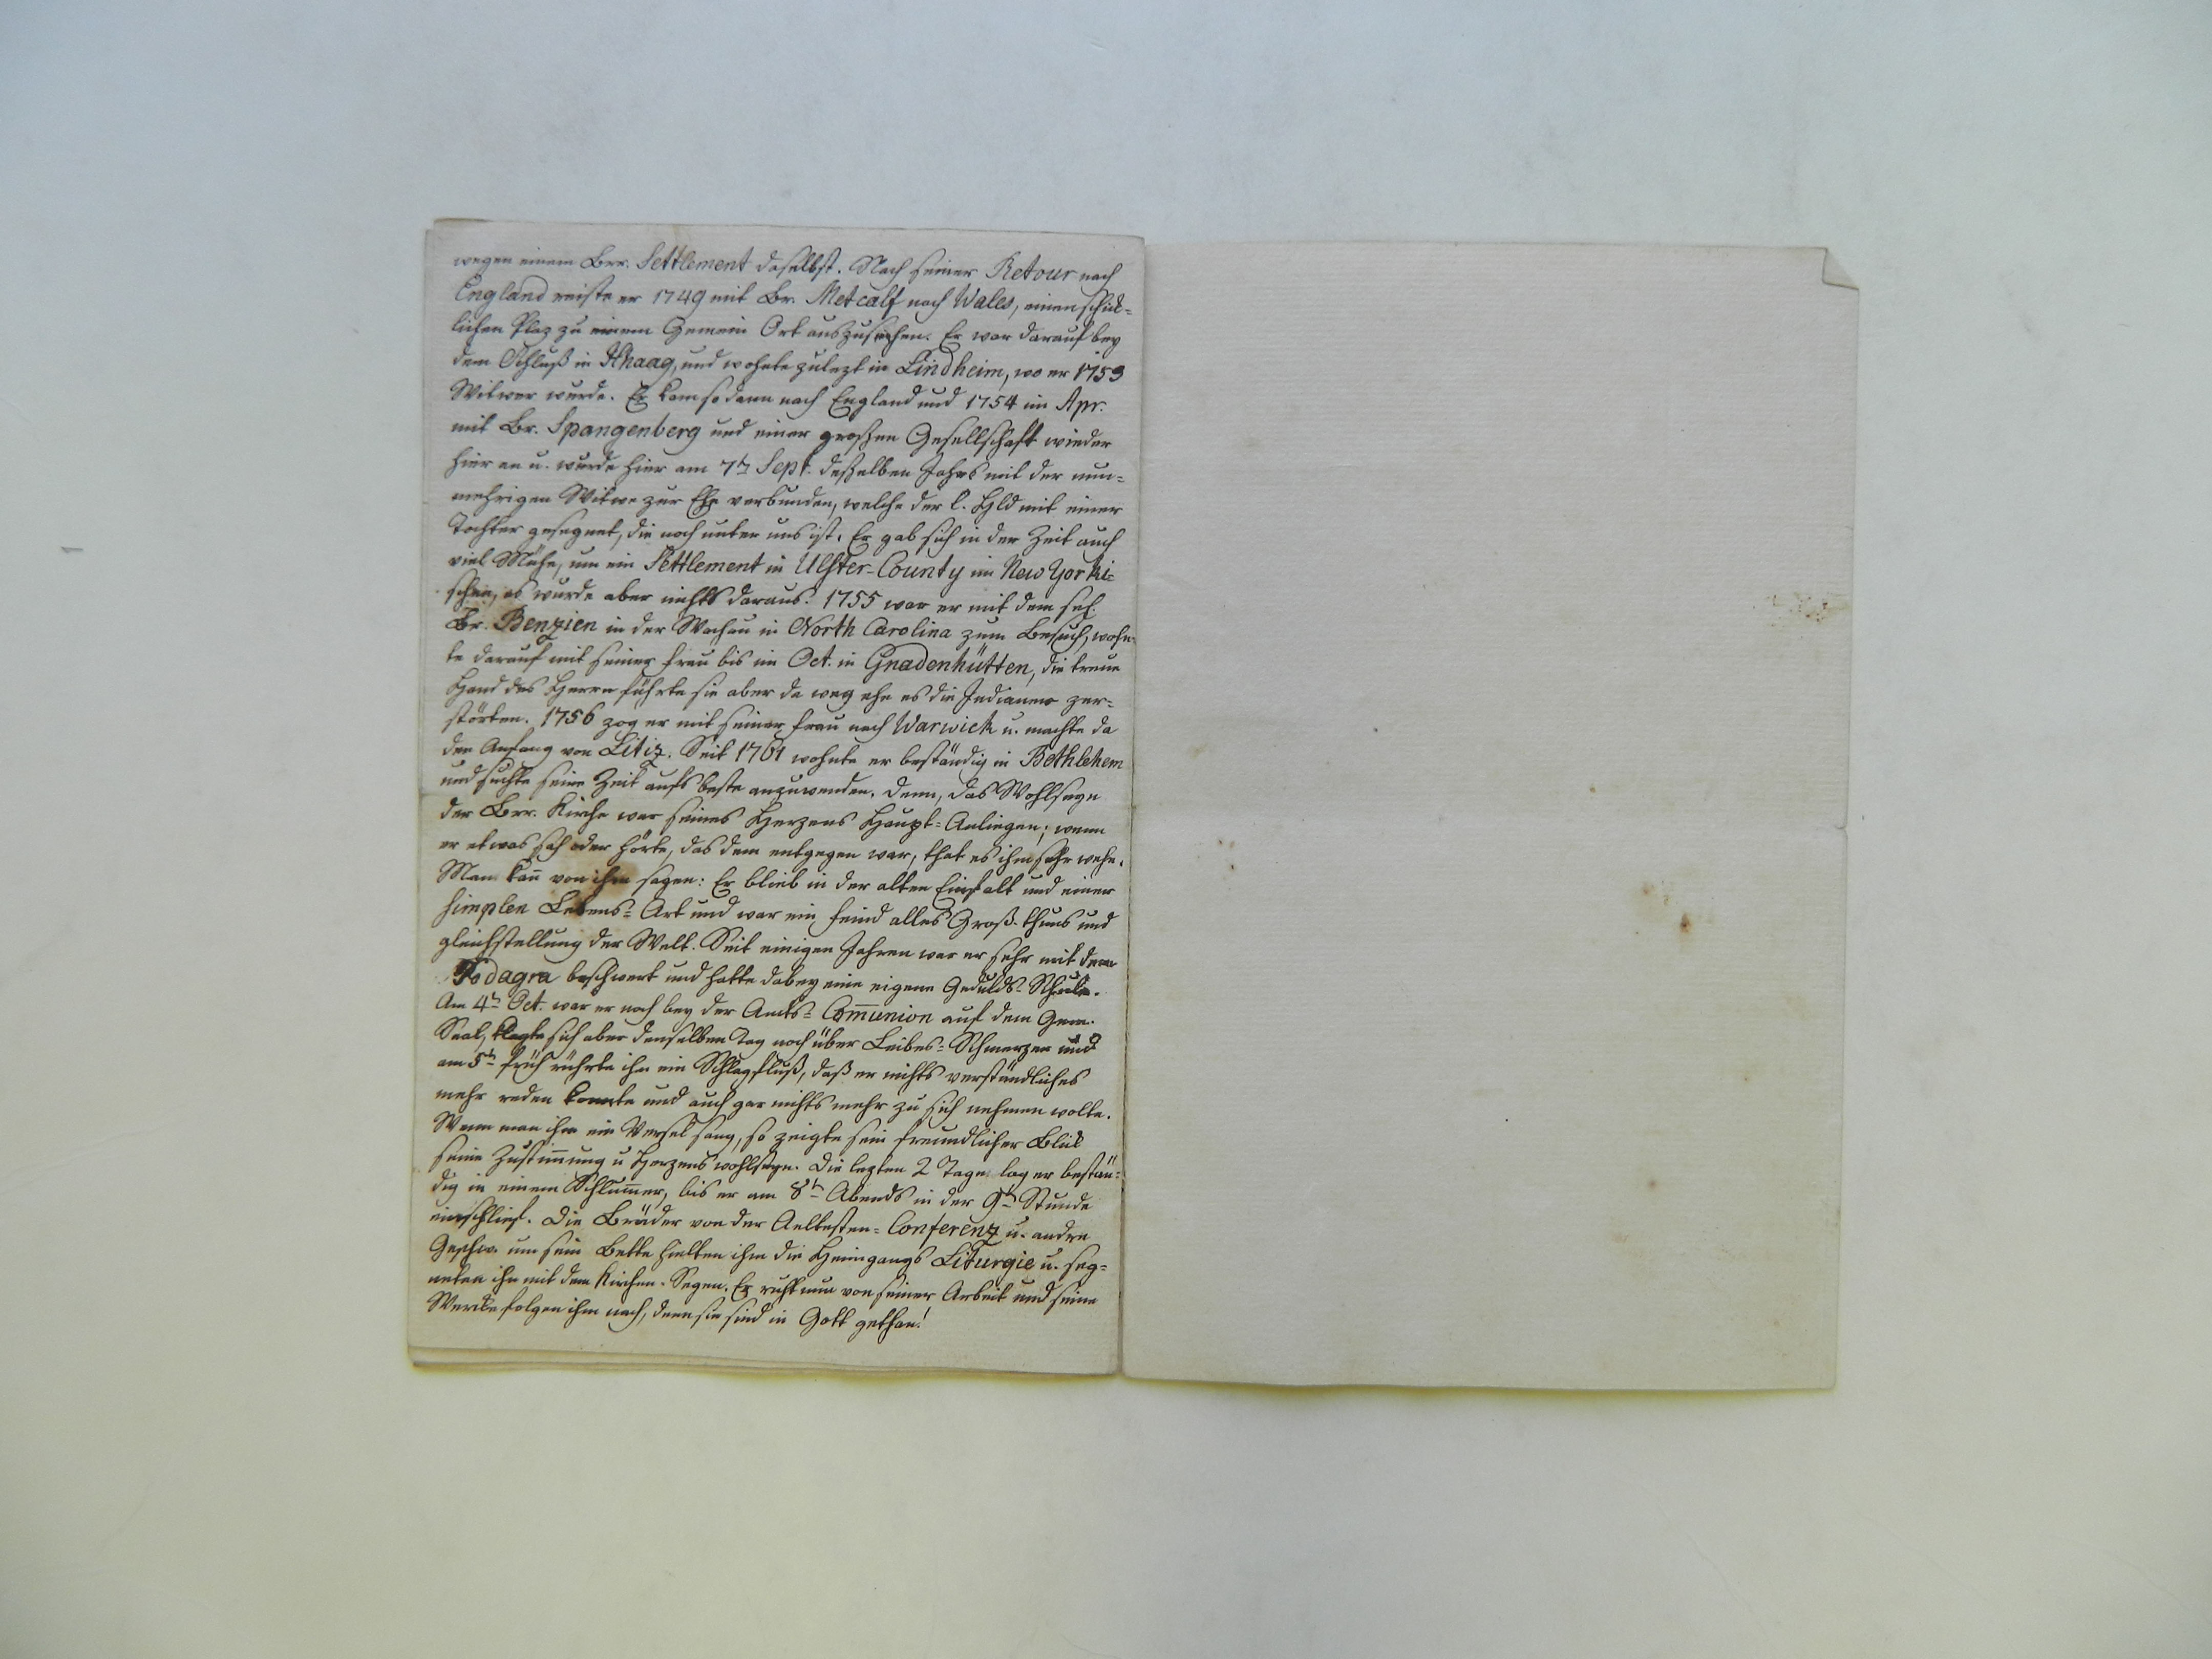 wegen einem Brr. Settlement daselbst. Nach seiner Retour nach
England reiste er 1749 mit Br. Metcalf nach Wales, einen schick-
lichen Plaz zu einem Gemein Ort auszusuchen. Er war darauf bey
dem Schluß in Haag, und wohnte zulezt in Lindheim, wo er 1753
Witwer wurde. Er kam sodann nach England und 1754 im Apr.
mit Br. Spangenberg und einer großen Gesellschaft wieder
hier an u. wurde hier am 7t Sept. deßelben Jahrs mit der nun-
mehrigen Witwe zur Ehe verbunden, welche der l. Hld mit einer
Tochter gesegnet, die noch unter uns ist. Er gab sich in der Zeit auch
viel Mühe, um ein Settlement in Ulster-County im New Yorki-
schen, es wurde aber nichts daraus. 1755 war er mit dem sel.
Br. Benzien in der Wachau in North Carolina zum Besuch, wohn-
te darauf mit seiner Frau bis im Oct. in Gnadenhütten, die treue
Hand des Herrn führte sie aber da weg ehe es die Indianer zer-
störten. 1756 zog er mit seiner Frau nach Warwick u. machte da
den Anfang von Litiz. Seit 1761 wohnte er beständig in Bethlehem
und suchte seine Zeit aufs beste anzuwenden. Denn, das Wohlseyn
der Brr. Kirche war seines Herzens Haupt-Anliegen; wenn
er etwas sah oder hörte, das dem entgegen war, that es ihm sehr wehe.
Man kañ von ihm sagen: Er blieb in der alten Einfalt und einer
simplen Lebens-Art und war ein Feind alles Groß-thuns und
gleichstellung der Welt. Seit einigen Jahren war er sehr mit dem
Podagra beschwert und hatte dabey eine eigene Gedulds-Schule.
Am 4t Oct. war er noch bey der Amts-Com̄union auf dem Gem.
Saal, klagte sich aber denselben Tag noch über Leibes-Schmerzen und
am 5t früh rührte ihn ein Schlagfluß, daß er nichts verständliches
mehr reden konnte und auch gar nichts mehr zu sich nehmen wolte.
Wenn man ihm ein Versel sang, so zeigte sein freundlicher Blick
seine Zustim̄ung u Herzens wohlseyn. Die lezten 2 Tage lag er bestän-
dig in einem Schlum̄er, bis er am 8t Abends in der 9t Stunde
einschlief. Die Brüder von der Aeltesten-Conferenz u. andre
Geschw. um sein Bette hielten ihm die Heimgangs Liturgie u. seg-
neten ihn mit dem Kirchen-Segen. Er ruht nun von seiner Arbeit und seine
Werke folgen ihm nach, denn sie sind in Gott gethan!